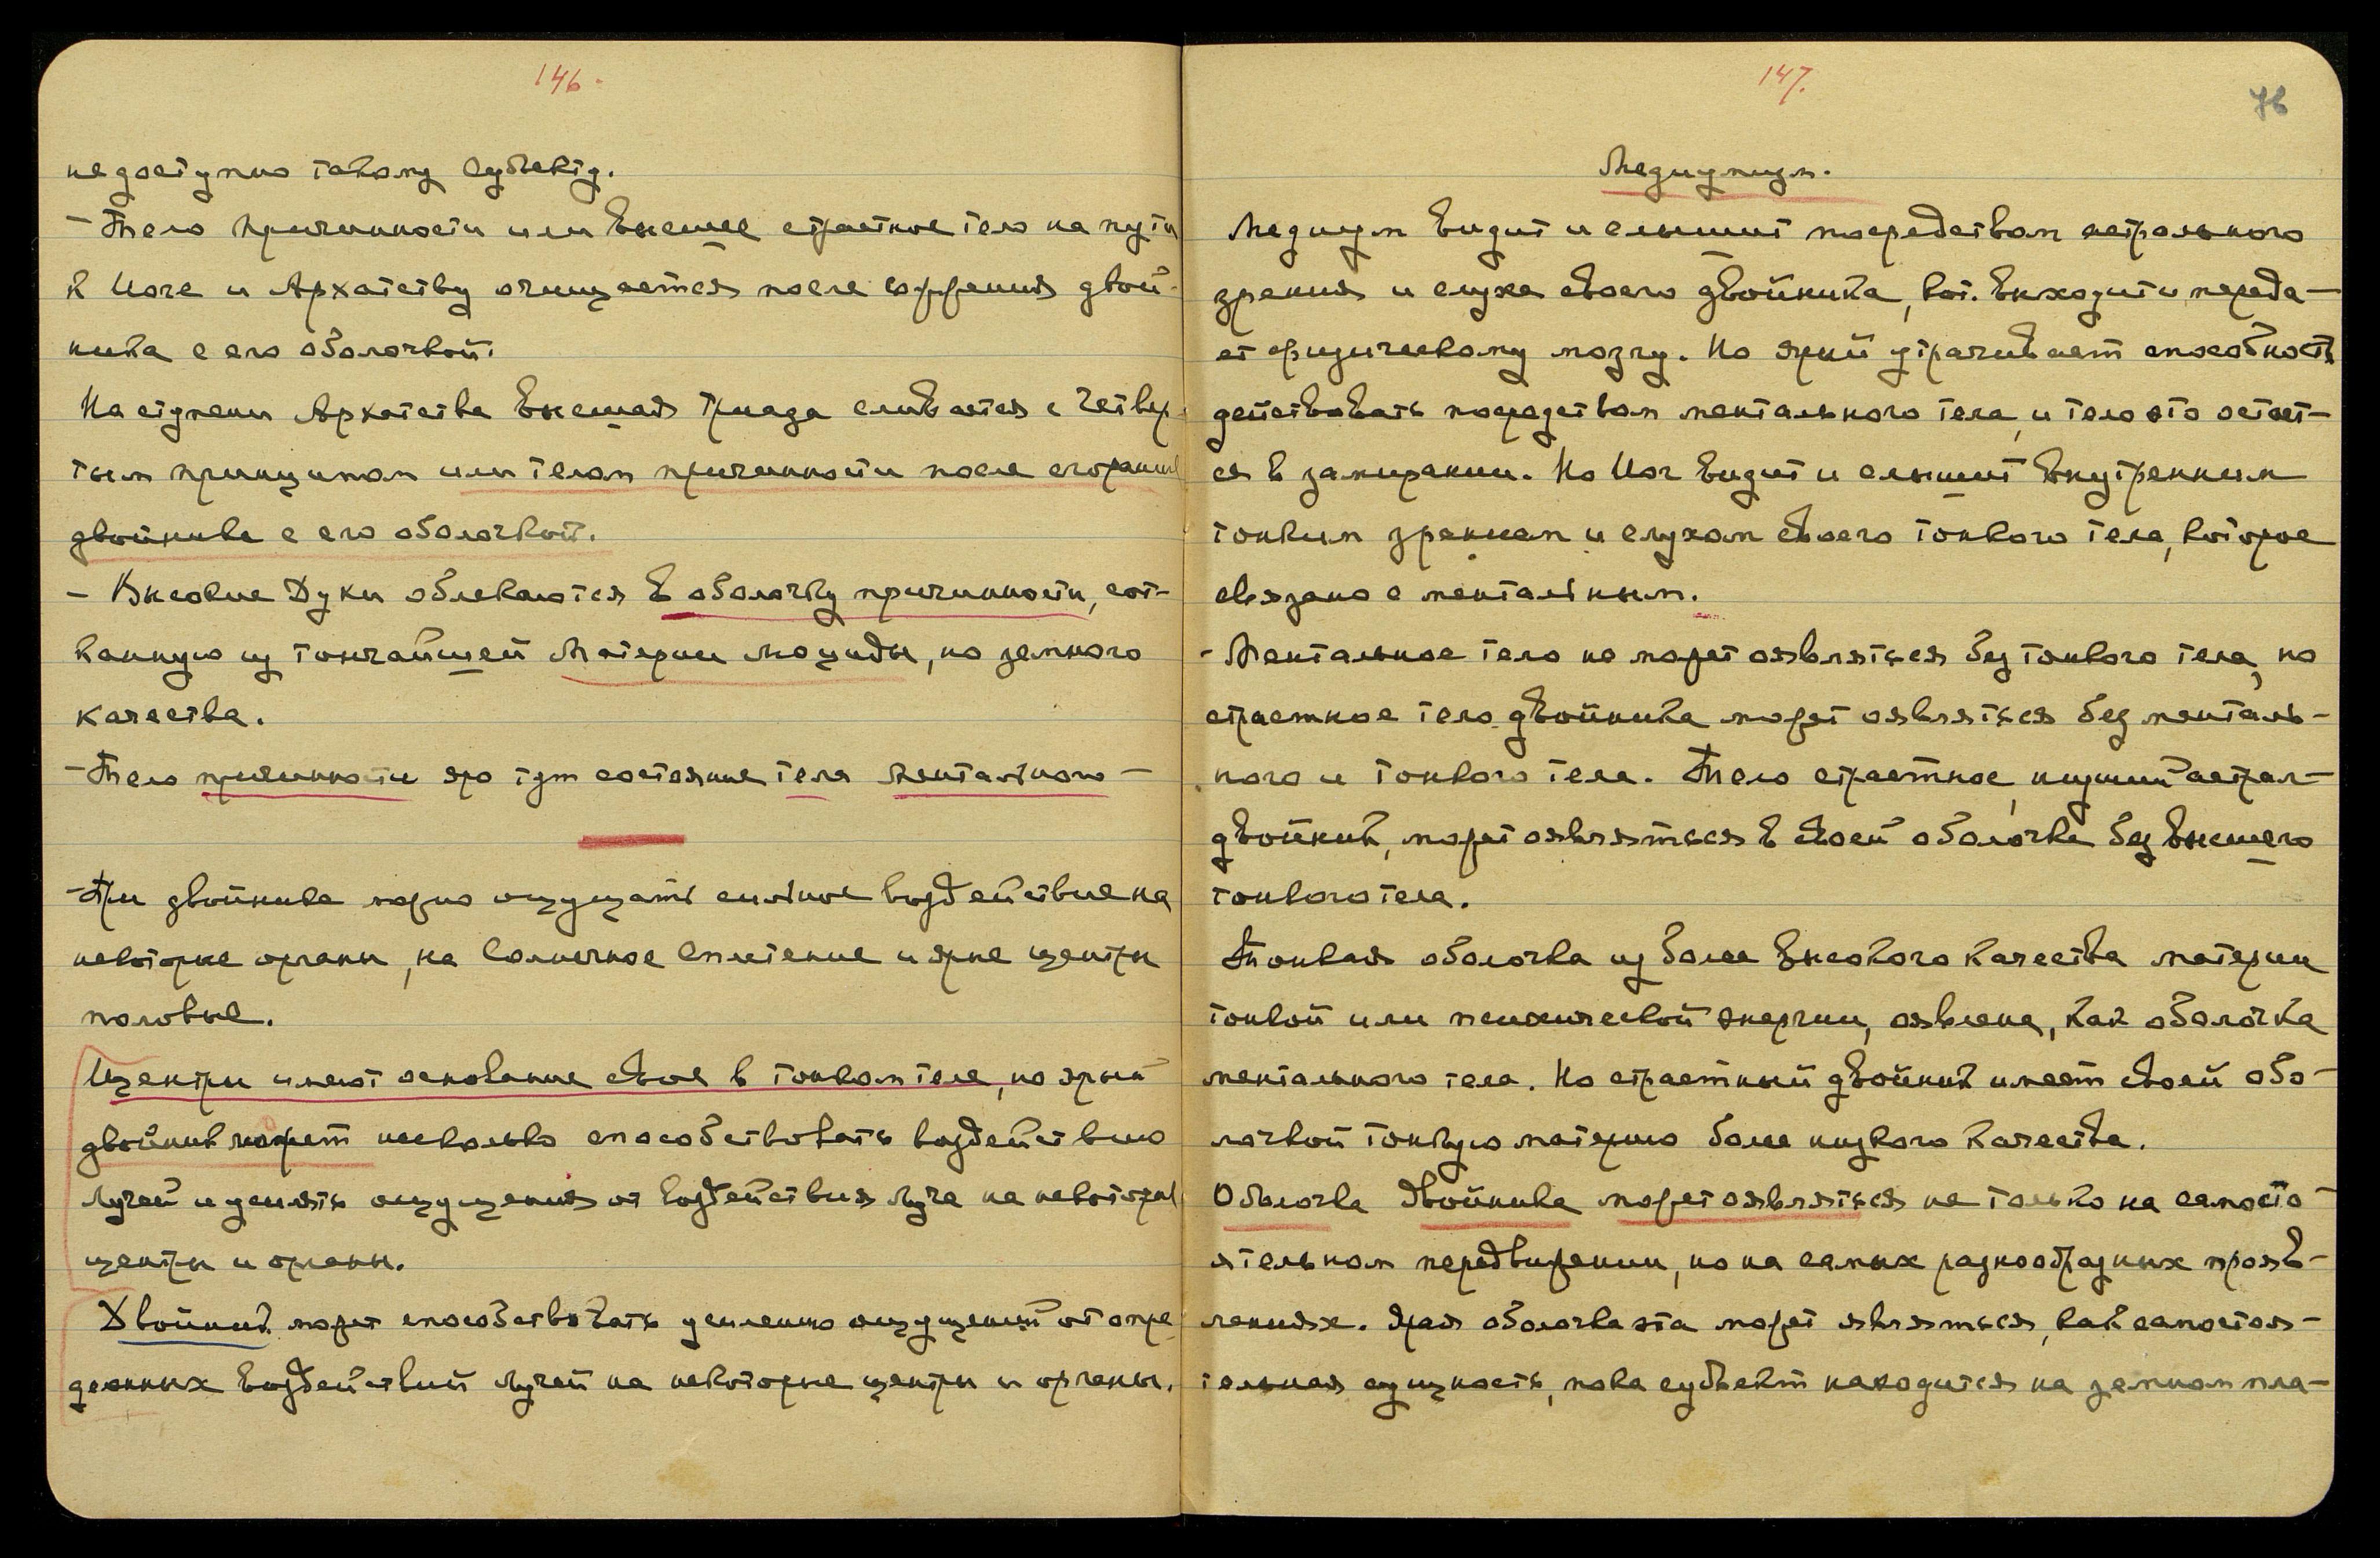 146.
недоступно такому субъекту.
— Тело причинности или высшее страстное тело на пути
к Йоге и Архатству очищается после сожжения двой-
ника с его оболочкой.
На ступени Архатства высшая триада сливается с четвер-
тым принципом или телом причинности после сгорания
двойника с его оболочкой.
— Высокие Духи облекаются в оболочку причинности, сот-
канную из тончайшей Материи Люциды, но земного
качества.
— Тело причинности яро тут состояние тела ментального —
— При двойнике можно ощущать сильное воздействие на
некоторые органы, на Солнечное Сплетение и ярые центры
половые.
Центры имеют основание свое в тонком теле, но ярый
двойник может несколько способствовать воздействию
Лучей и усилять ощущения от воздействия Луча на некоторые
центры и органы.
Двойник может способствовать усилению ощущений от опре-
деленных воздействий Лучей на некоторые центры и органы.
147.
76
Медиумизм.
Медиум видит и слышит посредством астрального
зрения и слуха своего двойника, кот. выходит и переда-
ет физическому мозгу. Но ярый утрачивает способность
действовать посредством ментального тела, и тело это остает-
ся в замирании. Но Йог видит и слышит внутренним
тонким зрением и слухом своего тонкого тела, которое
связано с ментальным.
- Ментальное тело не может оявляться без тонкого тела, но
страстное тело двойника может оявляться без менталь-
ного и тонкого тела. Тело страстное, низший астрал-
двойник, может оявляться в своей оболочке без высшего
тонкого тела.
Тонкая оболочка из более высокого качества материи
тонкой или психической энергии, оявлена, как оболочка
ментального тела. Но страстный двойник имеет своей обо-
лочкой тонкую материю более низкого качества.
Оболочка двойника может оявляться не только на самосто-
ятельном передвижении, но на самых разнообразных прояв-
лениях. Ярая оболочка эта может являться, как самостоя-
тельная сущность, пока субъект находится на земном пла-